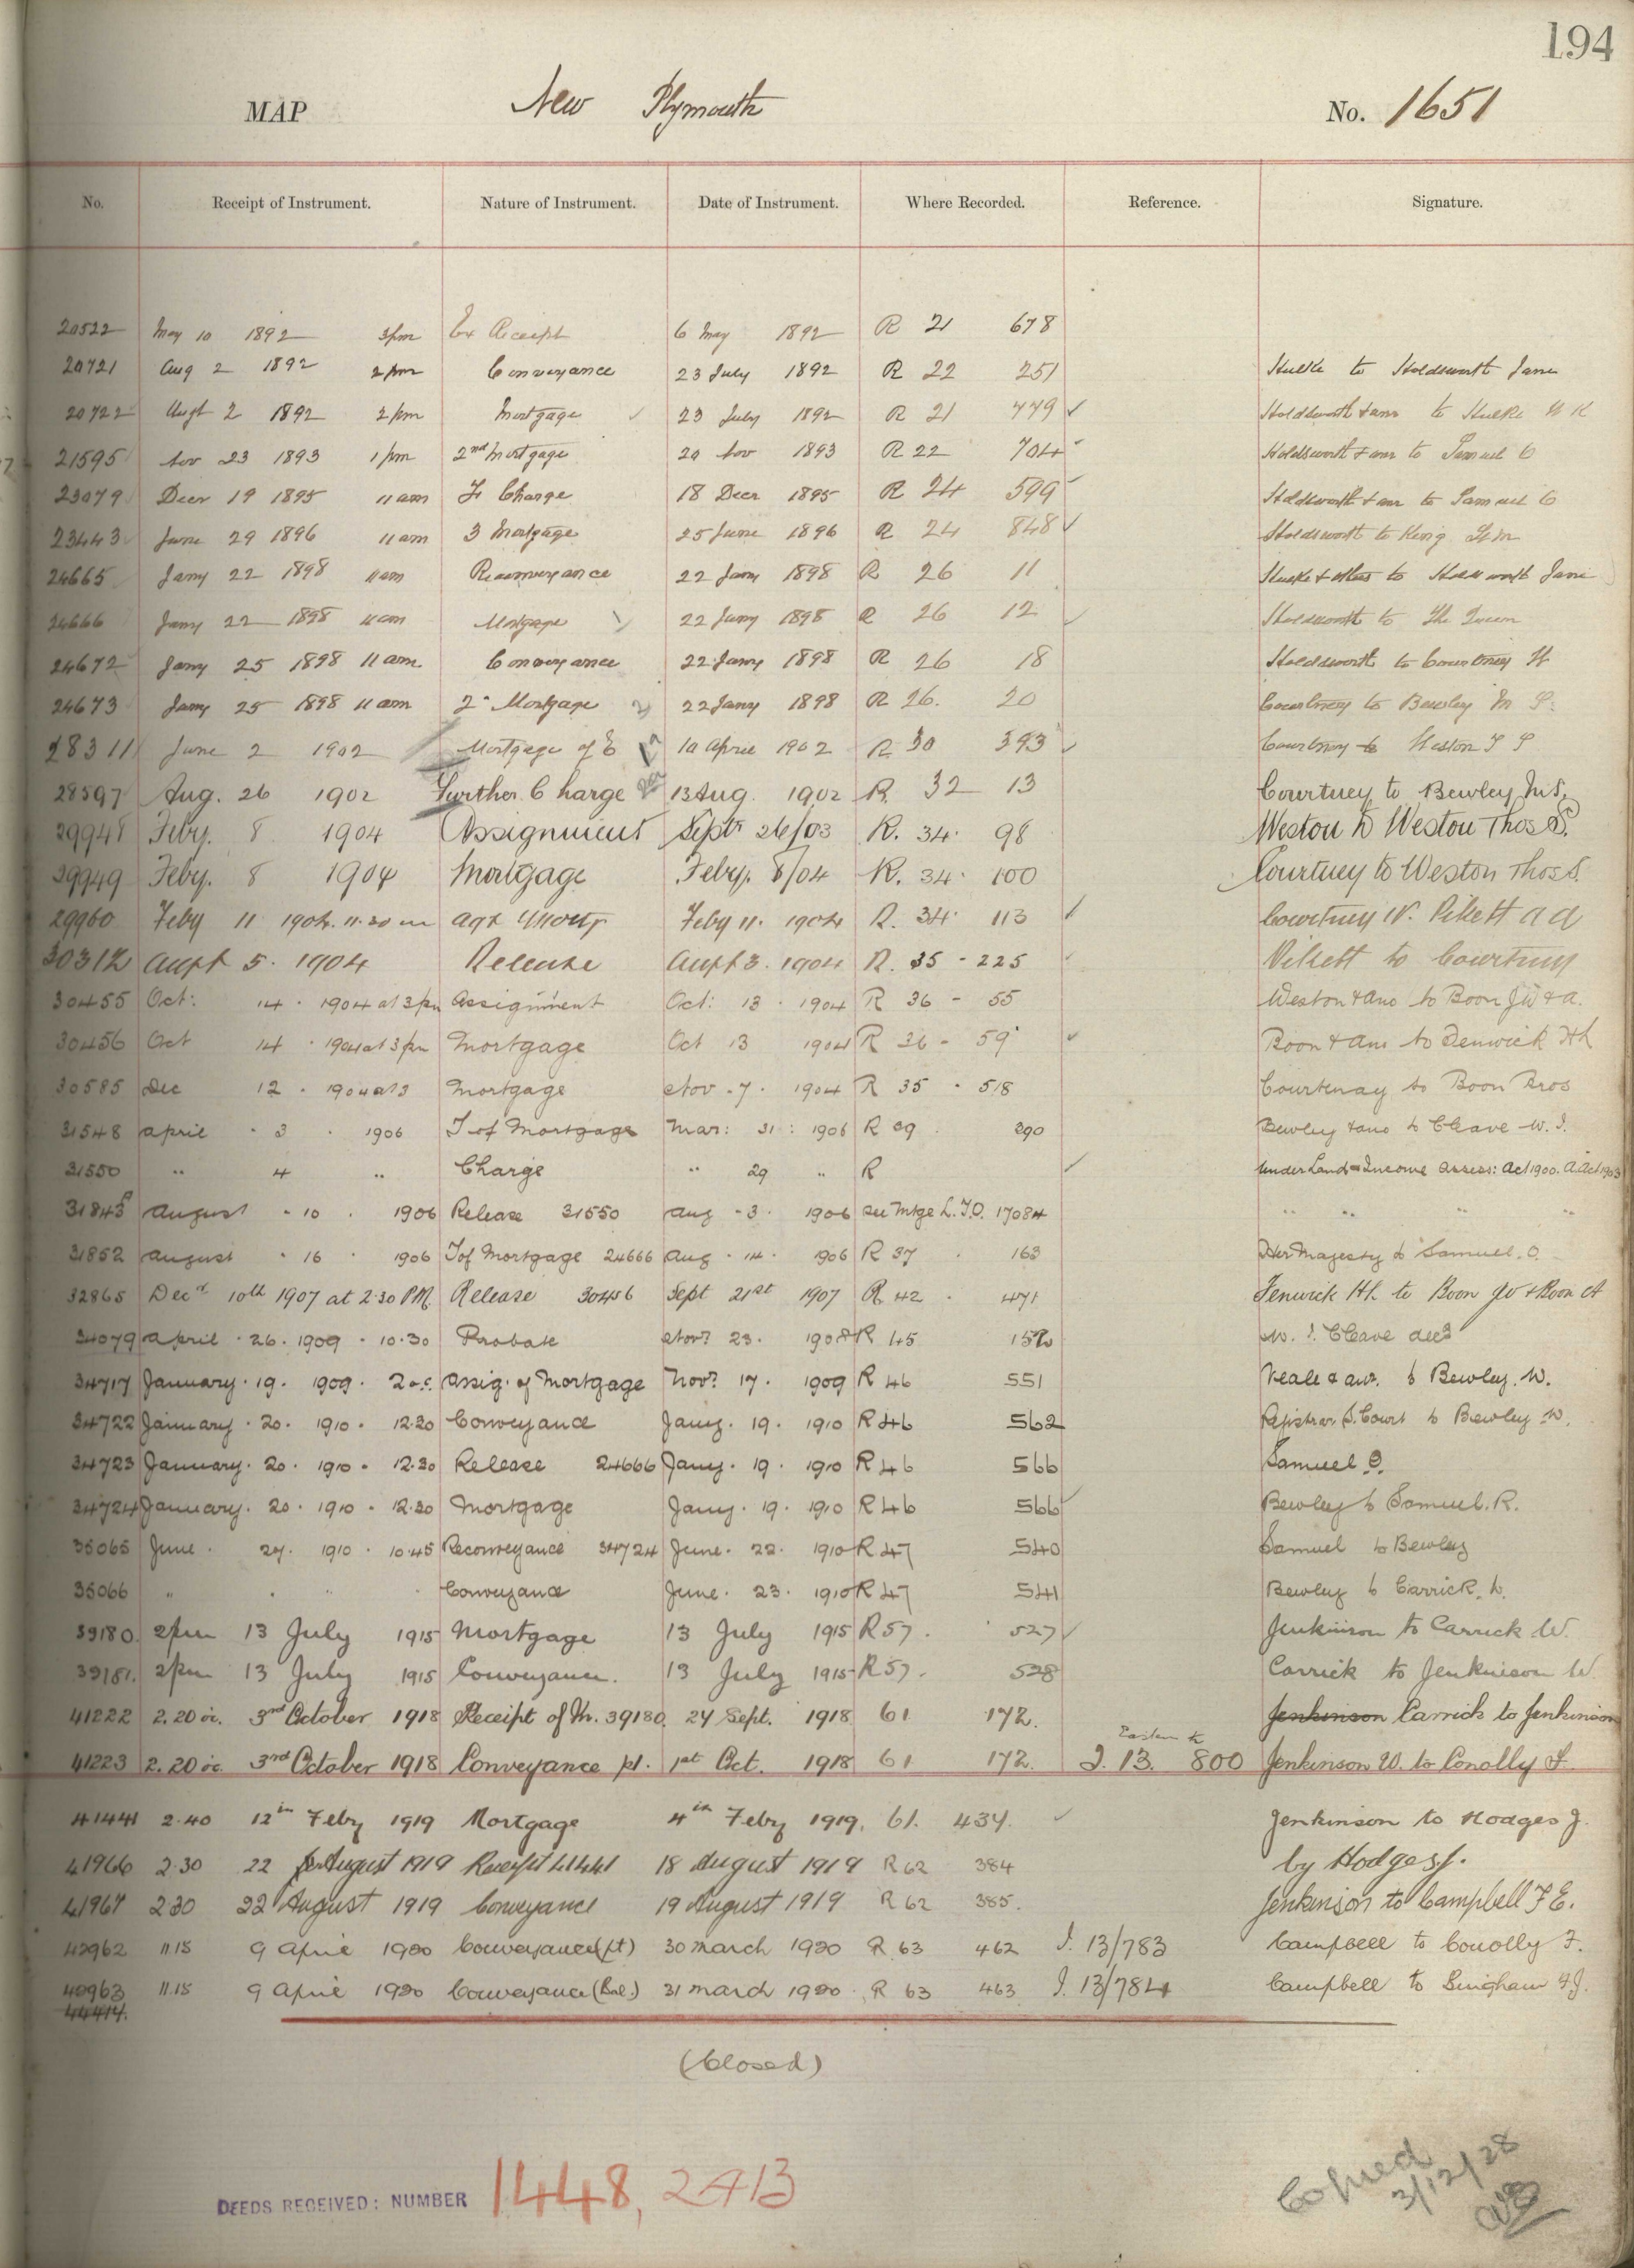 194
MAP New Plymouth No. 1651
No. Receipt of Instrument. Nature of Instrument. Date of Instrument. Where Recorded. Reference. Signature.
20522 May 10 1892 3pm Receipt 6 May 1892 R 21 678
20721 Aug 2 1892 2pm Conveyance 23 July 1892 R 22 251 Hulke to Holdsworth Jane
20722 Augt 2 1892 2pm Mortgage 23 July 1892 R 21 779 Holdsworth & anr to Hulke W K
21595 Nov 23 1893 1pm 2nd Mortgage 20 Nov 1893 R 22 704 Holdsworth & anr to Samuel O
23079 Decr 19 1895 11am F Charge 18 Decr 1895 R 24 599 Holdsworth & anr to Samuel O
23443 June 29 1896 11am 3 Mortgage 25 June 1896 R 24 848 Holdsworth to King
24665 Jany 22 1898 11am Reconveyance 22 Jany 1898 R 26 11 Hulke & others to Holdsworth Jane
24666 Jany 22 1898 11am Mortgage 22 Jany 1898 R 26 12 Holdsworth to The Queen
24672 Jany 25 1898 11am Conveyance 22 Jany 1898 R 26 18 Holdsworth to Courtney H
24673 Jany 25 1898 11am 2d Mortgage 22 Jany 1898 R 26. 20 Courtney to Bewley M S.
28311 June 2 1902 Mortgage of E 10 April 1902 R 30 393 Courtney to Weston T S
28597 Aug. 26 1902 Further Charge 13 Aug. 1902 R. 32 13 Courtney to Bewley M S.
29948 Feby. 8 1904 Assignment Septr 26/03 R. 34. 98 Weston to Weston Thos S.
29949 Feby. 8 1904 Mortgage Feby. 8/04 R. 34. 100 Courtney to Weston Thos S.
29960 Feby 11 1904. 11.30 am agt Mortg Feby 11. 1904 R. 34. 113 Courtney W. Pikett A A
30312 Augt 5. 1904 Release Augt 3. 1904 R. 35 - 225 Pikett to Courtney
30455 Oct: 14. 1904 at 3pm Assignment Oct: 13. 1904 R 36 - 55 Weston & Ano to Boon J W & A.
30456 Oct 14. 1904 at 3pm Mortgage Oct 13 1904 R 36 - 59 Boon & Ano to Fenwick Hh
30585 Dec 12. 1904 at 3 Mortgage Nov. 7. 1904 R 35 - 518 Courtenay to Boon Bros
31548 April 3. 1906 T of Mortgage Mar: 31: 1906 R 39 290 Bewley & ano to Cleave W. J.
31550 " 4 " Charge " 29 " R Under Land & Income Assess: Act 1900. A. Act 1903
31843 August 10. 1906 Release 31550 Aug 3. 1906 see Mtge L.T.O. 17084 " " " "
31852 August 16 1906 T of Mortgage 24666 Aug. 14. 1906 R 37. 163 Her Majesty to Samuel. O.
32865 Decr 10th 1907 at 2.30 PM. Release 30456 Sept 21st 1907 R 42. 471 Fenwick Hh. to Boon JW & Boon A
34079 April. 26. 1909. 10.30 Probate Novr 23. 1908 R 45 152 W. J. Cleave decd
34717 January. 19. 1909. Assig. of Mortgage Novr 17. 1909 R 46 551 Veale & anr. to Bewley. W.
34722 January. 20. 1910. 12.30 Conveyance Jany. 19. 1910 R 46 562 Registrar S. Court to Bewley W.
34723 January. 20. 1910. 12.30 Release 24666 Jany. 19. 1910 R 46 566 Samuel O.
34724 January. 20. 1910. 12.30 Mortgage Jany. 19. 1910 R 46 566 Bewley to Samuel. R.
35065 June. 27. 1910. 10.45 Reconveyance 34724 June. 22. 1910 R 47 540 Samuel to Bewley
35066 " " " Conveyance June. 23. 1910 R 47 541 Bewley to Carrick. W.
39180. 2pm 13 July 1915 Mortgage 13 July 1915 R 57. 527 Jenkinson to Carrick W.
39181. 2pm 13 July 1915 Conveyance. 13 July 1915 R 57. 528 Carrick to Jenkinson W.
41222 2.20 oc. 3rd October 1918 Receipt of M. 39180. 24 Sept. 1918 61 172. Jenkinson Carrick to Jenkinson
41223 2.20 oc. 3rd October 1918 Conveyance pt. 1st Oct. 1918 61 172. J. 13. 800 Jenkinson W. to Conolly F.
41441 2.40 12th Feby 1919 Mortgage 4th Feby 1919. 61. 434. Jenkinson to Hodges J.
41966 2.30 22 August 1919 Receipt 41441 18 August 1919 R 62 384 by Hodges J.
41967 2.30 22 August 1919 Conveyance 19 August 1919 R 62 385. Jenkinson to Campbell F E.
42962 11.15 9 April 1920 Conveyance (pt) 30 March 1920 R 63 462 J. 13/783 Campbell to Conolly F.
42963 11.15 9 April 1920 Conveyance (Bal.) 31 March 1920 R 63 463 J. 13/784 Campbell to Bingham F.J.
44414.
(Closed)
DEEDS RECEIVED: NUMBER 1448, 2413
Copied
3/12/28